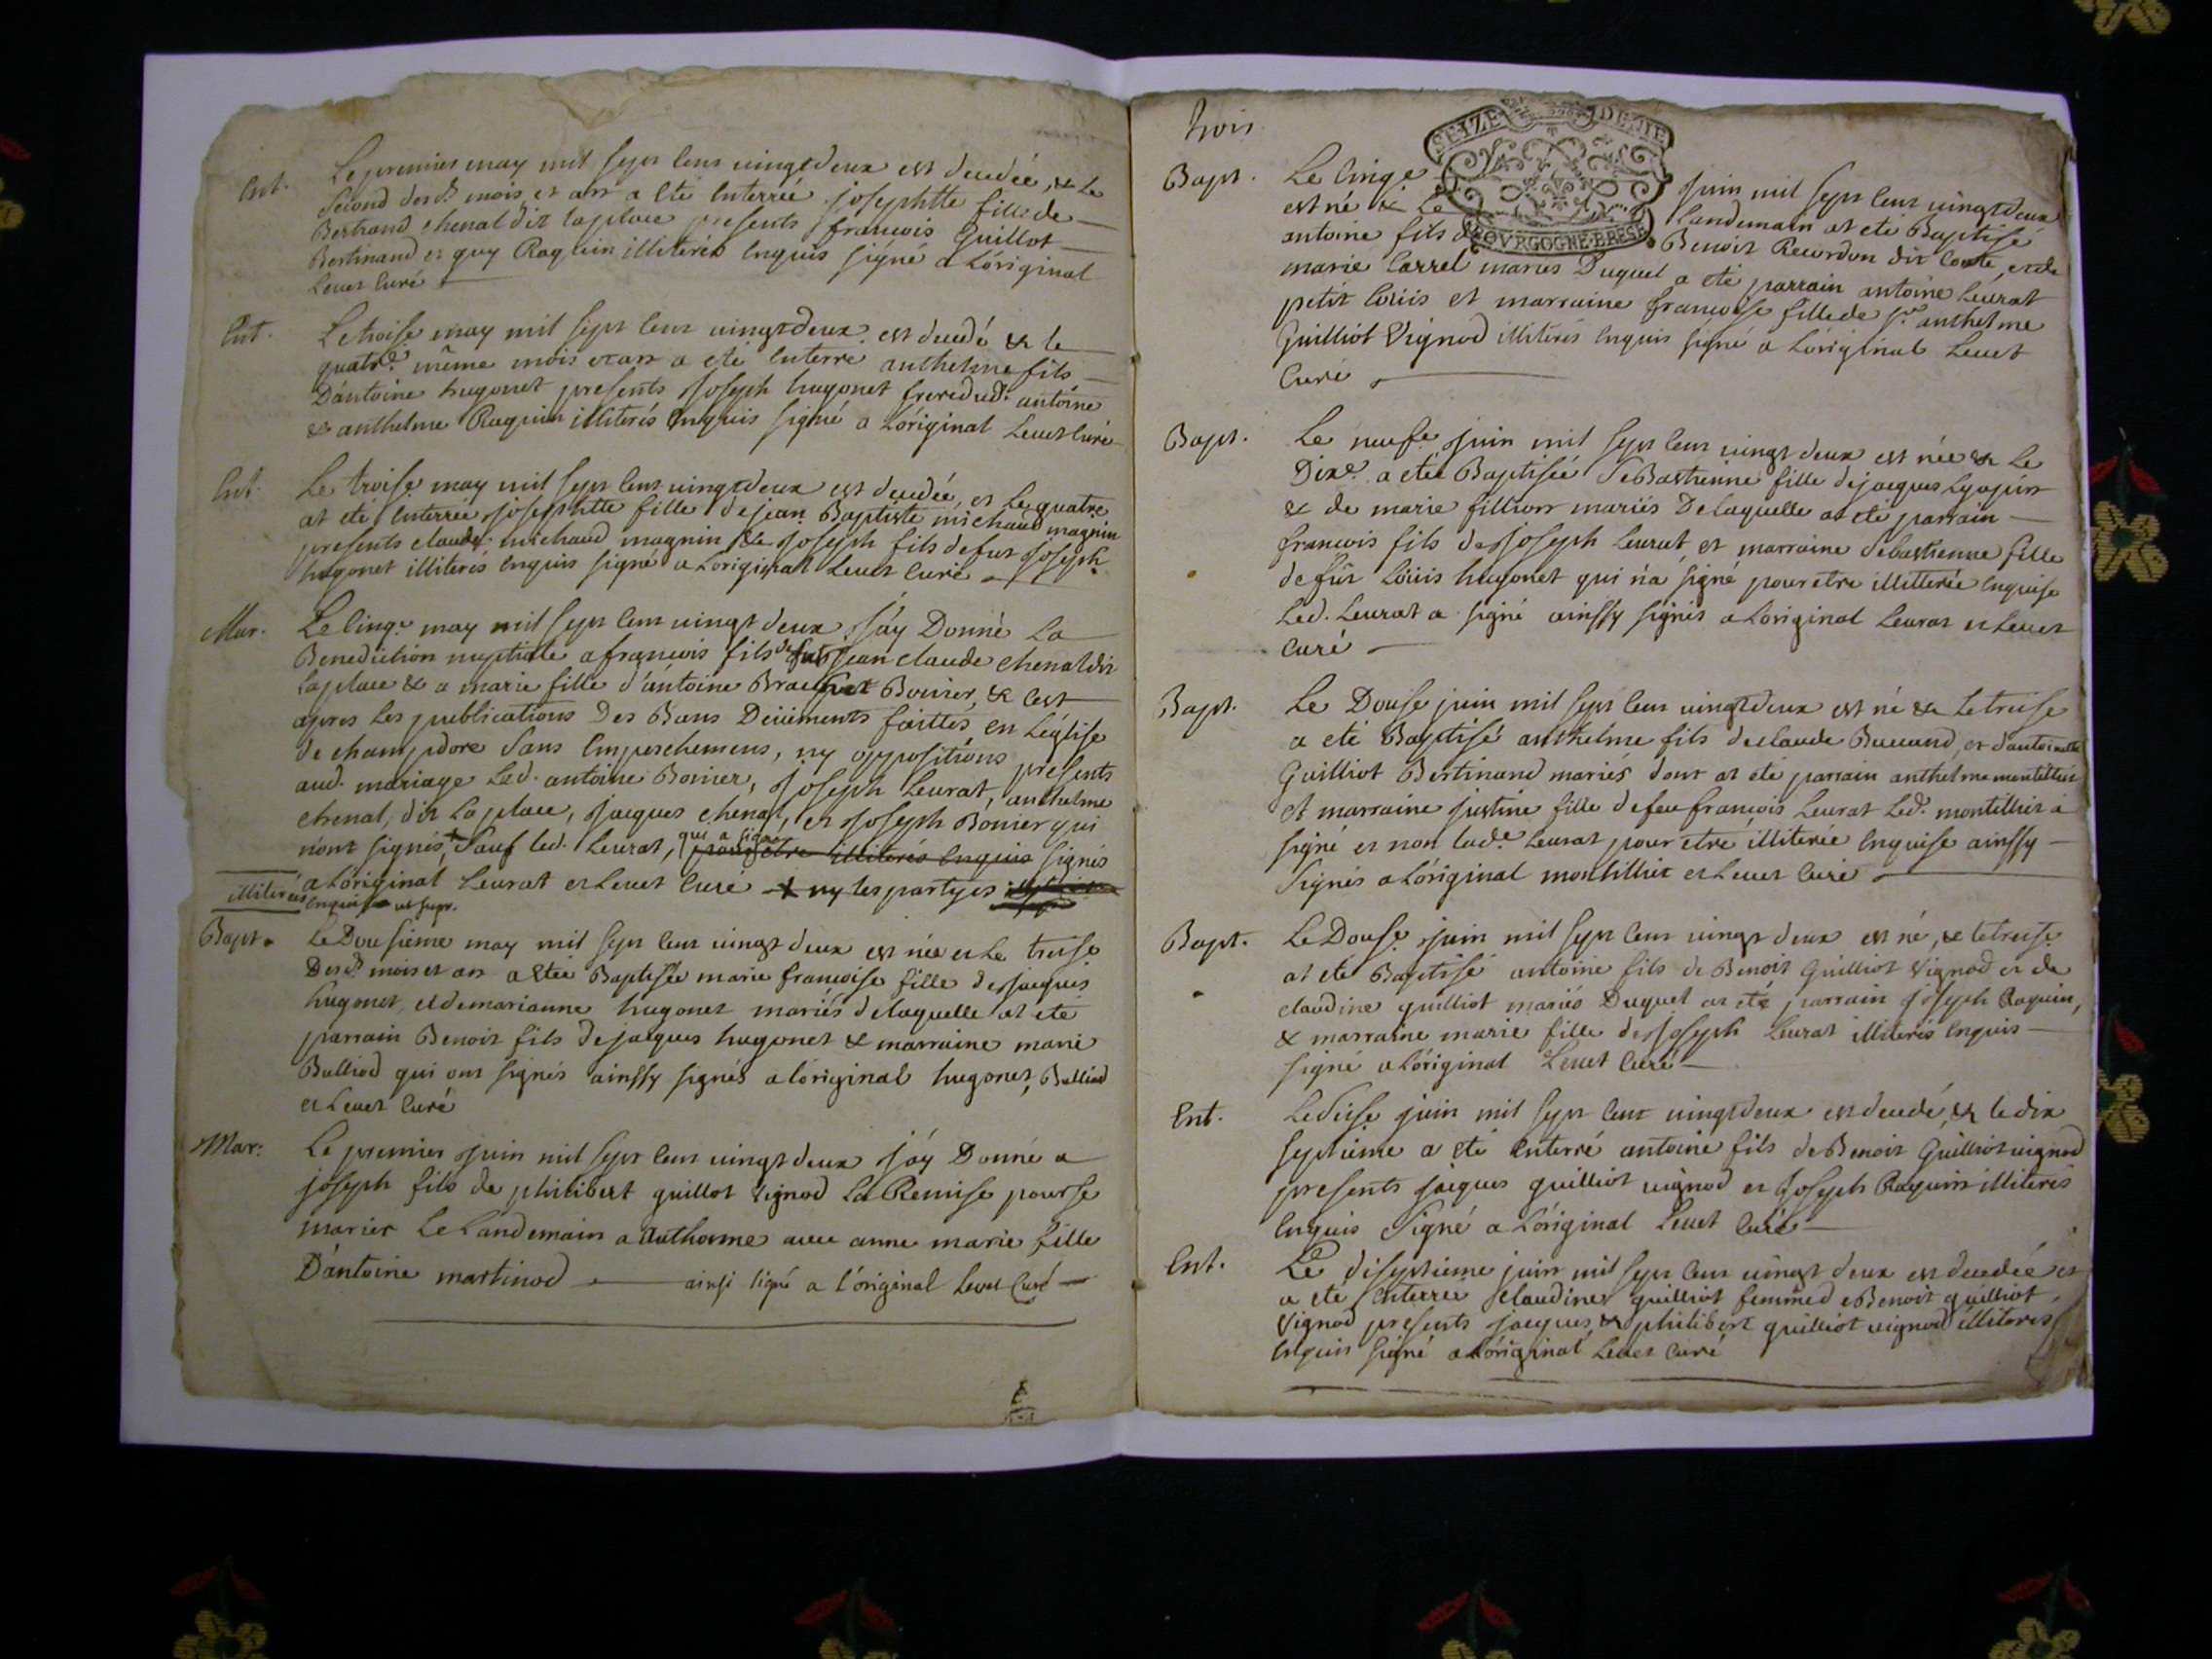 Ent.
Le premier may mil sept cens vingt deux est decedée, & le
second desd. mois et an a eté enterrée josephtte fille de
Bertrand chenal dit laplace presents francois Guillot
Bertinand et guy Raquin illiterés enquis signé a L'original
Levet curé
Ent.
Le troise may mil sept cens vingt deux est decedé & le
quatre. même mois et an a eté enterré anthelme fils
D'antoine hugonet presents Joseph hugonet frere dud. antoine
& anthelme Raquin illiterés enquis signé a L'original Levet curé
Ent.
Le troise may mil sept cens vingt deux est decedée, et le quatre
at eté enterrée josephtte fille de jean Baptiste michaud magnin
presents claude michaud magnin & Joseph fils de fut Joseph
hugonet illiterés enquis signé a L'original Levet curé
Mar.
Le cinqe. may mil sept cens vingt deux j'áy Donné La
Benediction nuptiale a francois fils de fut jean claude chenal dit
laplace & a marie fille d'antoine Bouvier, & cest
apres les publications Des Bans Deüements faittes en L'église
de champdore sans empeschemens, ny oppositions
aud. mariage presents Led. antoine Bouvier, Joseph Levrat, anthelme
chenal, dit La place, jacques chenal, et Joseph Bouvier qui
nont signés, + Sauf led. Levrat, qui a signé pour etre illiterés enquis signés
a L'original Levrat et Levet curé + ny les partyes
illiterées enquises ut supr.
Bapt.
Le Dousiéme may mil sept cens vingt deux est née et le treise
Desd. mois et an a eteé Baptisée marie francoise fille de jacques
hugonet, et de marianne hugonet mariés de laquelle at eté
parrain Benoit fils de jacques hugonet & marraine marie
Bulliod qui ont signés ainssy signés a l'original hugonet, Bulliod
et Levet curé
Mar:
Le premier juin mil sept cens vingt deux j'áy Donné a
joseph fils de philibert guillot vignod La Remise pour se
marier Le Landemain a Authonne avec anne marie fille
D'antoine martinod ainsi signé a l'original Levet Curé
trois
SEIZE DENIE
BOVRGOGNE·BRESE
Bapt.
Le cinqe. juin mil sept cens vingt deux
est né & Le Landemain at eté Baptisé
antoine fils de Benoit Recordon dit Conte, et de
marie Carrel mariés Duquel a eté parrain antoine Levrat
petit Loüis et marraine francoise fille de sr. anthelme
Guilliot Vignod illiterés enquis signé a L'original Levet
Curé
Bapt.
Le neufe. juin mil sept cens vingt deux est née & Le
Dixe. a eteé Baptisée Sebastienne fille de jacques
& de marie fillion mariés De laquelle at eté parrain
francois fils de Joseph Levrat, et marraine sebastienne fille
de fût Loüis hugonet qui n'a signé pour etre illitterée enquise
Led. Levrat a signé ainssy signés a L'original Levrat et Levet
curé
Bapt.
Le Douse juin mil sept cens vingt deux est né & Le treise
a eté Baptisé anthelme fils de claude Buccand, et d'antoinette
Guilliot Bertinand mariés dont at eté parrain anthelme montillier
et marraine justine fille de feu francois Levrat Led. montillier a
signé et non lade. Levrat pour etre illiterée enquise ainssy
Signés a L'original montillier et Levet Curé
Bapt.
Le Douse. juin mil sept cens vingt deux est né, & le treise
at eté Baptisé antoine fils de Benoit Guilliot Vignod et de
claudine guilliot mariés Duquel at eté parrain Joseph Raquin,
& marraine marie fille de Joseph Levrat illiterés enquis
signé a L'original Levet curé
Ent.
Le seise juin mil sept cens vingt deux est decedé & le dix
septieme a eté enterré antoine fils de Benoit Guilliot vignod
presents jacques guilliot vignod et Joseph Raquin illiterés
enquis Signé a L'original Levet Curé
Ent.
Le diseptieme juin mil sept cens vingt deux est decedée et
a eté enterrée claudine guilliot femme de Benoit guilliot
Vignod presents jacques, & philibert guilliot vignod illiterés
enquis signé a L'original Levet curé